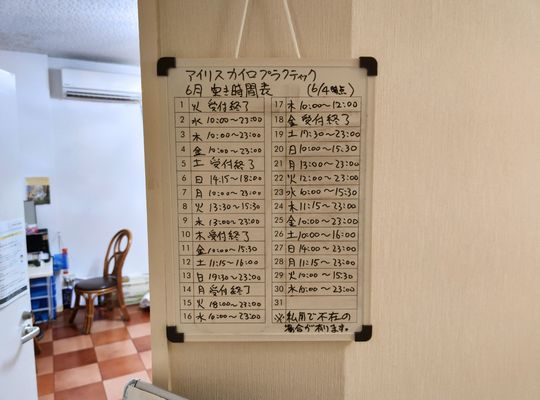 アイリスカイロプラクティック
6月 空き時間表 (6/4時点)
1 火 受付終了
2 水 10:00~23:00
3 木 10:00~23:00
4 金 10:00~23:00
5 土 受付終了
6 日 14:15~18:00
7 月 10:00~23:00
8 火 13:30~15:30
9 水 13:00~23:00
10 木 受付終了
11 金 10:00~15:30
12 土 11:15~16:00
13 日 19:30~23:00
14 月 受付終了
15 火 18:00~23:00
16 水 10:00~23:00
17 木 10:00~12:00
18 金 受付終了
19 土 17:30~23:00
20 日 10:00~15:30
21 月 13:00~23:00
22 火 12:00~23:00
23 水 10:00~15:30
24 木 11:15~23:00
25 金 10:00~23:00
26 土 10:00~16:00
27 日 14:00~23:00
28 月 11:15~23:00
29 火 10:00~15:30
30 水 10:00~23:00
31
※私用で不在の
場合が有ります。